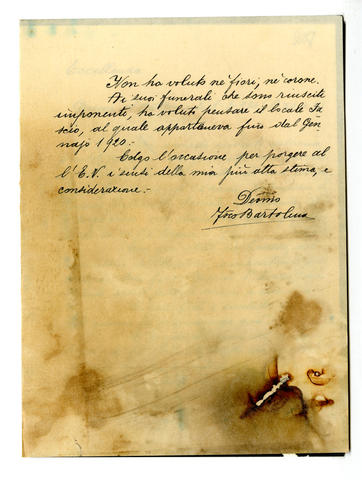 Non ha voluto nè fiori, nè corone.
Ai suoi funerali che sono riuscite
imponente, ha voluto pensare il locale Fa-
scio, al quale apparteneva fino dal Gen-
najo 1920.-
Colgo l'occasione per porgere al
l'E.V. i sensi della mia più alta stima, e
considerazione.-
Devmo
Bartolena